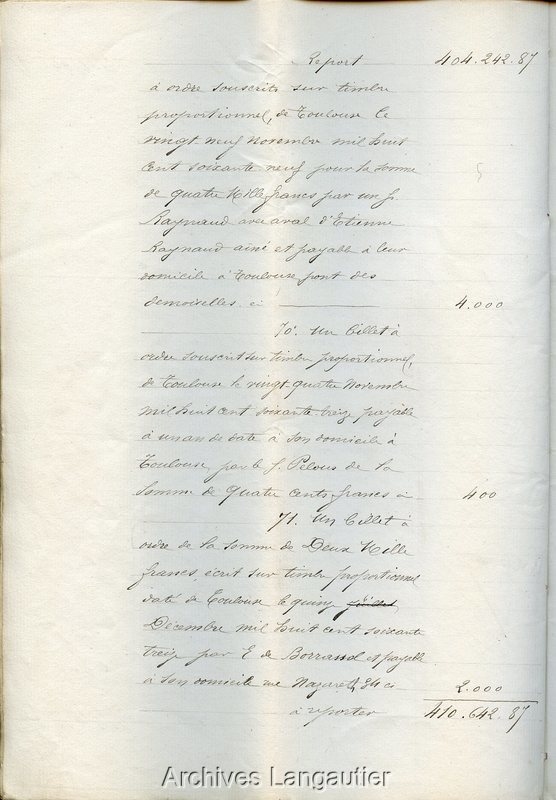 Report 404.242.87
à ordre souscrits sur timbre
proportionnel, de Toulouse le
vingt neuf Novembre mil huit
cent soixante neuf pour la somme
de quatre Mille francs par un s.
Raynaud avec aval d'Etienne
Raynaud ainé et payable à leur
domicile à Toulouse pont des
demoiselles. ci 4.000
70°. Un billet à
ordre souscrit sur timbre proportionnel,
de Toulouse le vingt quatre Novembre
mil huit cent soixante treize payable
à un an de date à son domicile à
Toulouse, par le s. Pelous de la
Somme de Quatre cents francs ci 400
71. Un billet à
ordre de la somme de Deux Mille
francs, écrit sur timbre proportionnel
daté de Toulouse le quinze juillet
Décembre mil huit cent soixante
treize par E de Borrassol et payable
à son domicile rue Nazareth, 34 ci 2.000
à reporter 410.642.87
Archives Langautier